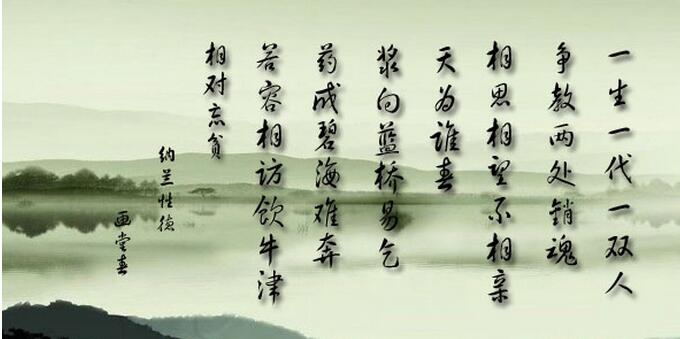 一生一代一双人
争教两处銷魂
相思相望不相亲
天为谁春
浆向蓝桥易乞
药成碧海难奔
若容相访饮牛津
相对忘贫
纳兰性德
画堂春